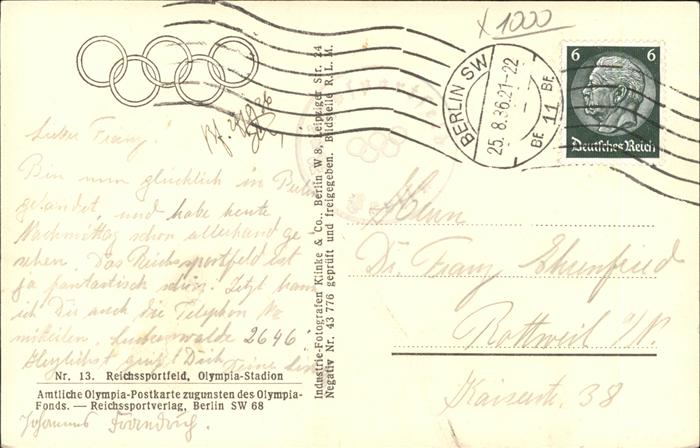 x 1000
BERLIN SW
25.8.36.21-22
BE 11 BE
6 6
Deutsches Reich
Lieber Franz!
Bin nun glücklich in Berlin
gelandet, und habe heute
Nachmittag schon allerhand ge
sehen. Das Reichssportfeld ist
ja fantastisch schön. Jetzt kann
ich Dir auch die Telephon No
mitteilen. Luckenwalde 2646
Herzlichst grüßt Dich
Johannes
Nr. 13. Reichssportfeld, Olympia-Stadion
Amtliche Olympia-Postkarte zugunsten des Olympia-
Fonds. — Reichssportverlag, Berlin SW 68
Industrie-Fotografen Klinke & Co., Berlin W 8, Leipziger Str. 24
Negativ Nr. 43 776 geprüft und freigegeben. Bildstelle R. L. M.
Herrn
Dr. Franz Ehrenfried
Rottweil a/N.
Kaiserstr. 38